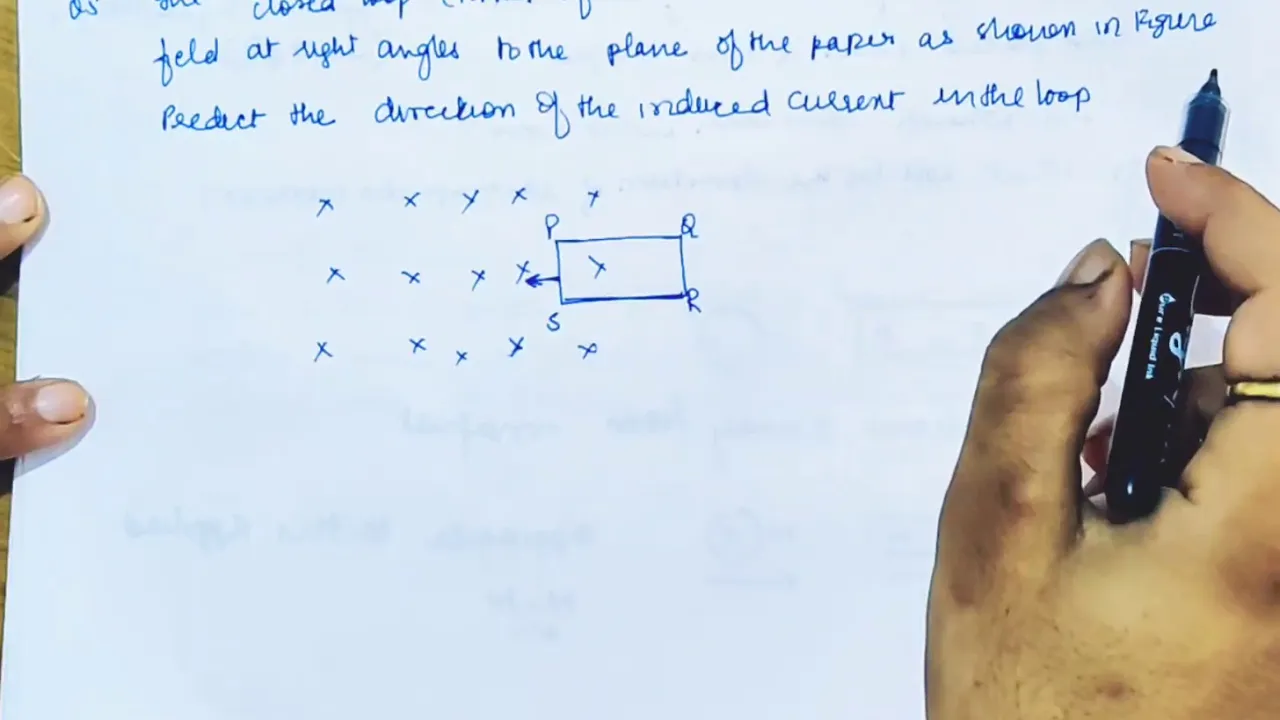 the closed loop
field at right angles to the plane of the paper as shown in Figure
Predict the direction of the induced current in the loop
x x x x x
P Q
x x x x x
S R
x x x x x
Pure Liquid Ink